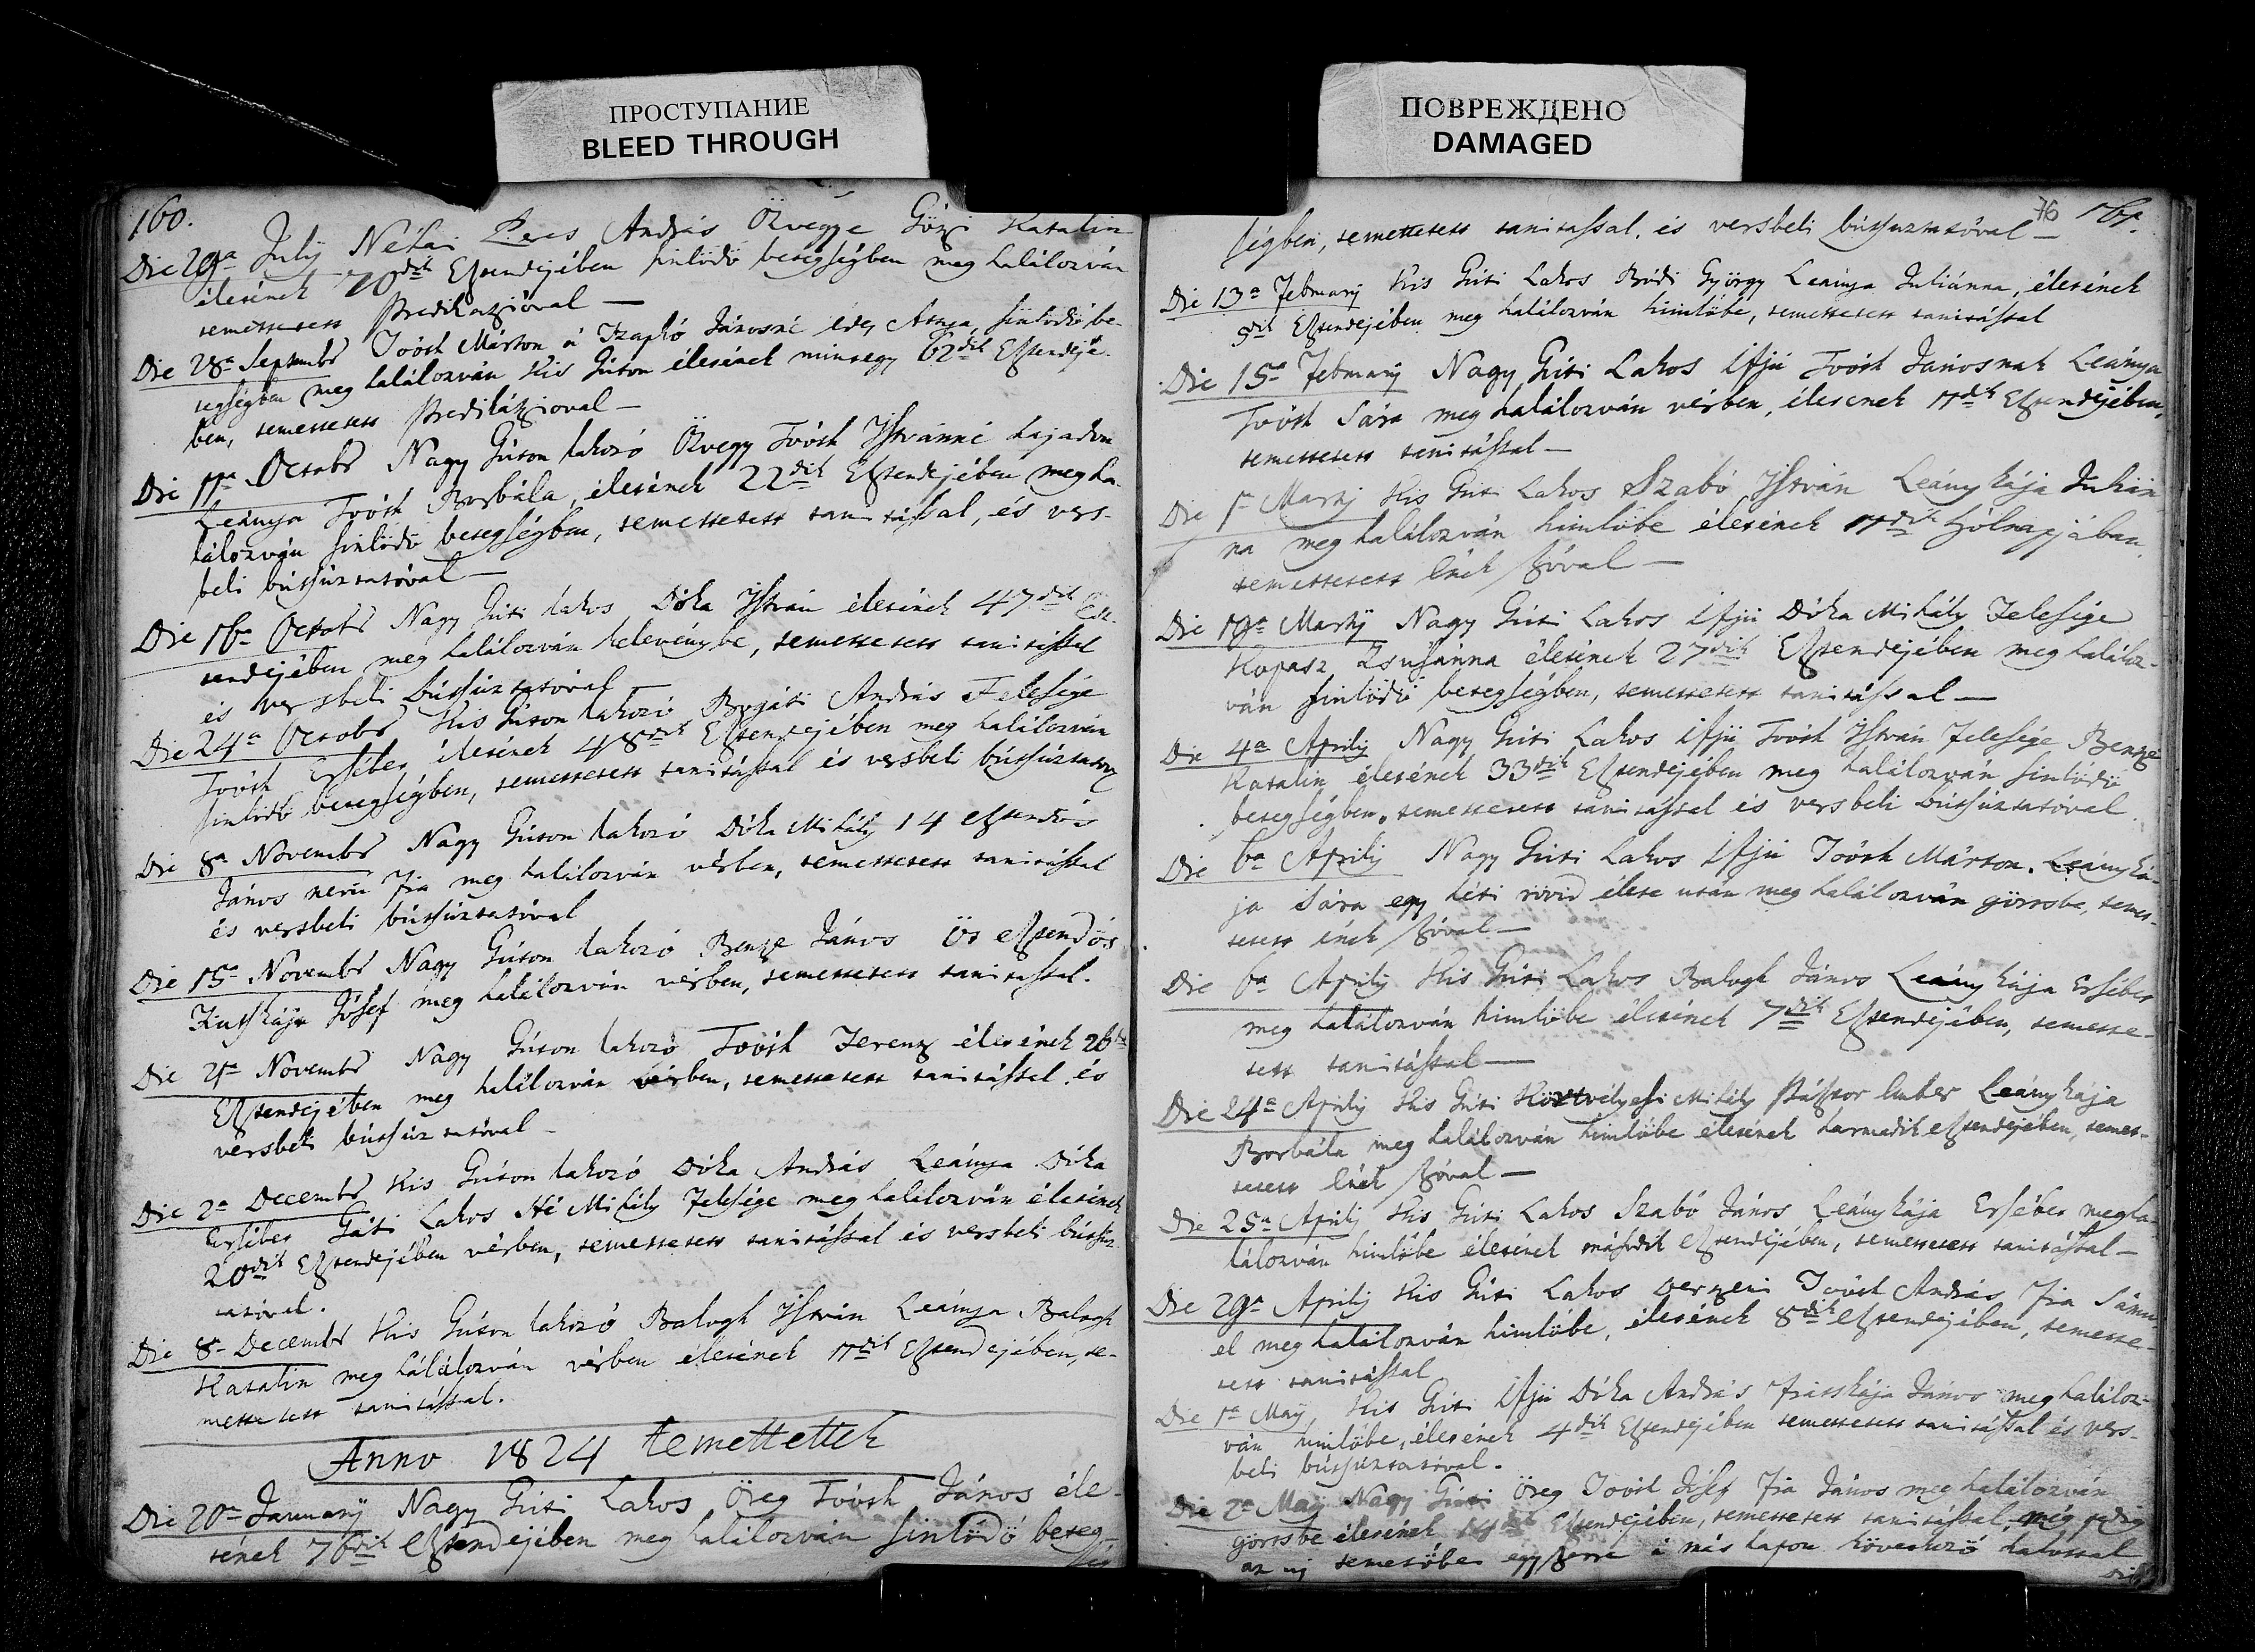 ПРОСТУПАНИЕ
BLEED THROUGH
160.
Die 29a July Néhai Peres András Özvegye Gözi Katalin
életének 70dik Esztendejében sinlödö betegségben meg halálozván
temettetett Predikatzióval —
Die 28a Septembr Toóth Márton á Szapkó Jánosné édes Annya, sinlödö be-
tegségben meg halálozván Kis Gúton életének mintegy 62dik Esztendejé-
ben, temettetett Predikátzioval —
Die 11a Octobr Nagy Gúton lakozó Özvegy Toóth Istvánné hajadon
Leánya Toóth Borbála, életének 22dik Esztendejében meg ha-
lálozván sinlödö betegségben, temettetett tanitással, és vers-
beli bútsúztatóval —
Die 16a Octobr Nagy Gúti lakos Dóka István életének 47dik Esz-
tendejében meg halálozván kelevénybe, temettetett tanitással
és versbeli bútsúztatóval —
Die 24a Octobr Kis Gúton lakozó Bojáti András Felesége
Toóth Ersébet életének 48dik Esztendejében meg halálozván
sinlödö betegségben, temettetett tanitással és versbeli bútsúztatóv
Die 8a Novembr Nagy Gúton lakozó Dóka Mihály 14 esztendös
János nevü Fia meg halálozván vérben, temettetett tanitással
és versbeli bútsúztatóval
Die 15a Novembr Nagy Gúton lakozó Bentze János öt esztendös
Fiutskája Jósef meg halálozván vérben, temettetett tanitással.
Die 21a Novembr Nagy Gúton lakozó Toóth Ferentz életének 26dik
Esztendejében meg halálozván vérben, temettetett tanitással és
versbeli bútsúztatóval —
Die 2a Decembr Kis Gúton lakozó Dóka András Leánya Dóka
Ersébet Gáti Lakos Hé Mihály Felesége meg halálozván életének
20dik Esztendejében vérben, temettetett tanitással és versbeli bútsúz-
tatóval.
Die 8a Decembr Kis Gúton lakozó Balogh István Leánya Balogh
Katalin meg halálozván vérben életének 11dik Esztendejében, te-
mettetett tanitással.
Anno 1824 temettettek
Die 20a January Nagy Gúti Lakos Öreg Toóth János éle-
tének 76dik Esztendejében meg halálozván sinlödö beteg-
ség
ПОВРЕЖДЕНО
DAMAGED
76 161.
ségben, temettetett tanitással, és versbeli bútsuztatóval —
Die 13a February Kis Gúti Lakos Bódi György Leánya Juliánna, életének
9dik Esztendejében meg halálozván himlöbe, temettetett tanitással
Die 15a February Nagy Gúti Lakos Ifjú Toóth Jánosnak Leánya
Toóth Sára meg halálozván vérben, életenek 11dik Esztendejében,
temettetett tanitással —
Die 1a Martÿ Kis Gúti Lakos Szabó István Leánykája Julián
na meg halálozván himlöbe életének 11dik Hólnapjában,
temettetett Ének szóval —
Die 19a Martÿ Nagy Gúti Lakos Ifjú Dóka Mihály Felesége
Kopasz Zsusánna életének 27dik Esztendejében meg haláloz-
ván sinlödö betegségben, temettetett tanitással —
Die 4a Aprilÿ Nagy Gúti Lakos Ifjú Toóth István Felesége Bentze
Katalin életének 33dik Esztendejében meg halálozván sinlödö
betegségben, temettetett tanitással és versbeli bútsúztatóval.
Die 6a Aprilÿ Nagy Gúti Lakos Ifjú Toóth Márton. Leányká-
ja Sára egy héti rövid élete után meg halálozván görtsbe, temet-
tetett ének szóval —
Die 6a Aprilÿ Kis Gúti Lakos Balogh János Leánykája Ersébet
meg halálozván himlöbe életének 7dik Esztendejében, temette-
tett tanitással —
Die 24a Aprilÿ Kis Gúti Körtvélyesi Mihály Pásztor Ember Leánykája
Borbála meg halálozván himlöbe életének harmadik esztendejében, temet-
tetett Ének szóval —
Die 25a Aprilÿ Kis Gúti Lakos Szabó János Leánykája Ersébet megha-
lálozván himlöbe életének második esztendejében, temettetett tanitással —
Die 29a Aprilÿ Kis Gúti Lakos Toóth András Fia Sámu
el meg halálozván himlöbe, életének 8dik esztendejében, temette-
tett tanitással
Die 1a Maÿ, Kis Gúti Ifjú Dóka András Fiutskája János meg haláloz-
ván himlöbe, életének 4dik Esztendejében temettetett tanitással és vers-
beli bútsúztatóval.
Die 2a Maÿ Nagy Gúti Öreg Toóth Jósef Fia János meg halálozván
görtsbe életének 14dik Esztendejében, temettetett tanitással, még pedig
az uj temetöben egyszerre á más lapon következö halottal